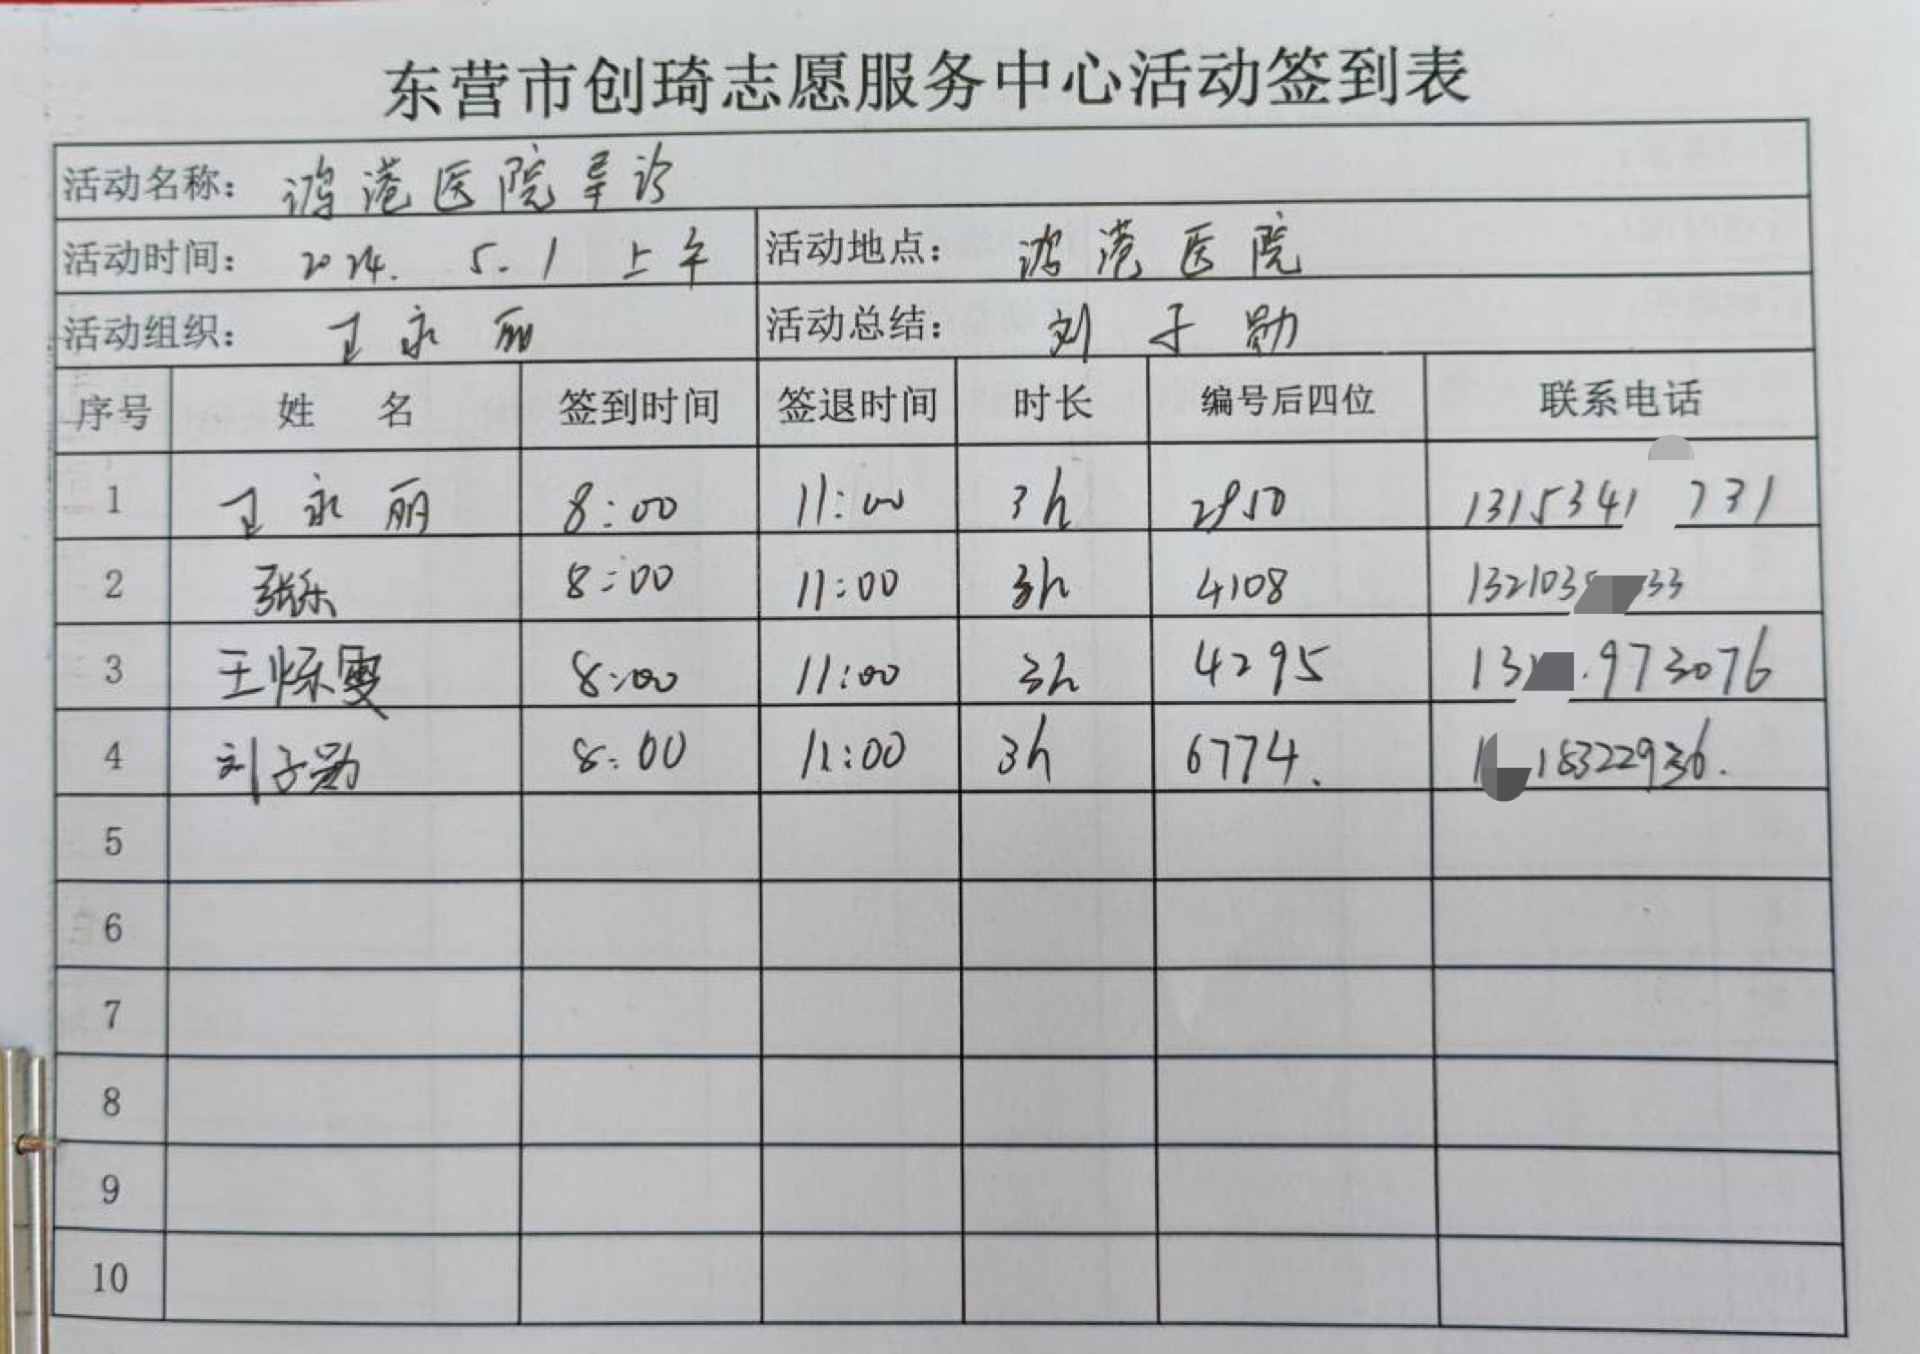 东营市创琦志愿服务中心活动签到表
活动名称: 鸿港医院导诊
活动时间: 2024. 5.1 上午 活动地点: 鸿港医院
活动组织: 王永丽 活动总结: 刘子勋
序号 姓 名 签到时间 签退时间 时长 编号后四位 联系电话
1 王永丽 8:00 11:00 3h 2950 1315341 731
2 张乐 8:00 11:00 3h 4108 132103 33
3 王烁雯 8:00 11:00 3h 4295 13 973076
4 刘子勋 8:00 11:00 3h 6774. 1 18322936.
5
6
7
8
9
10